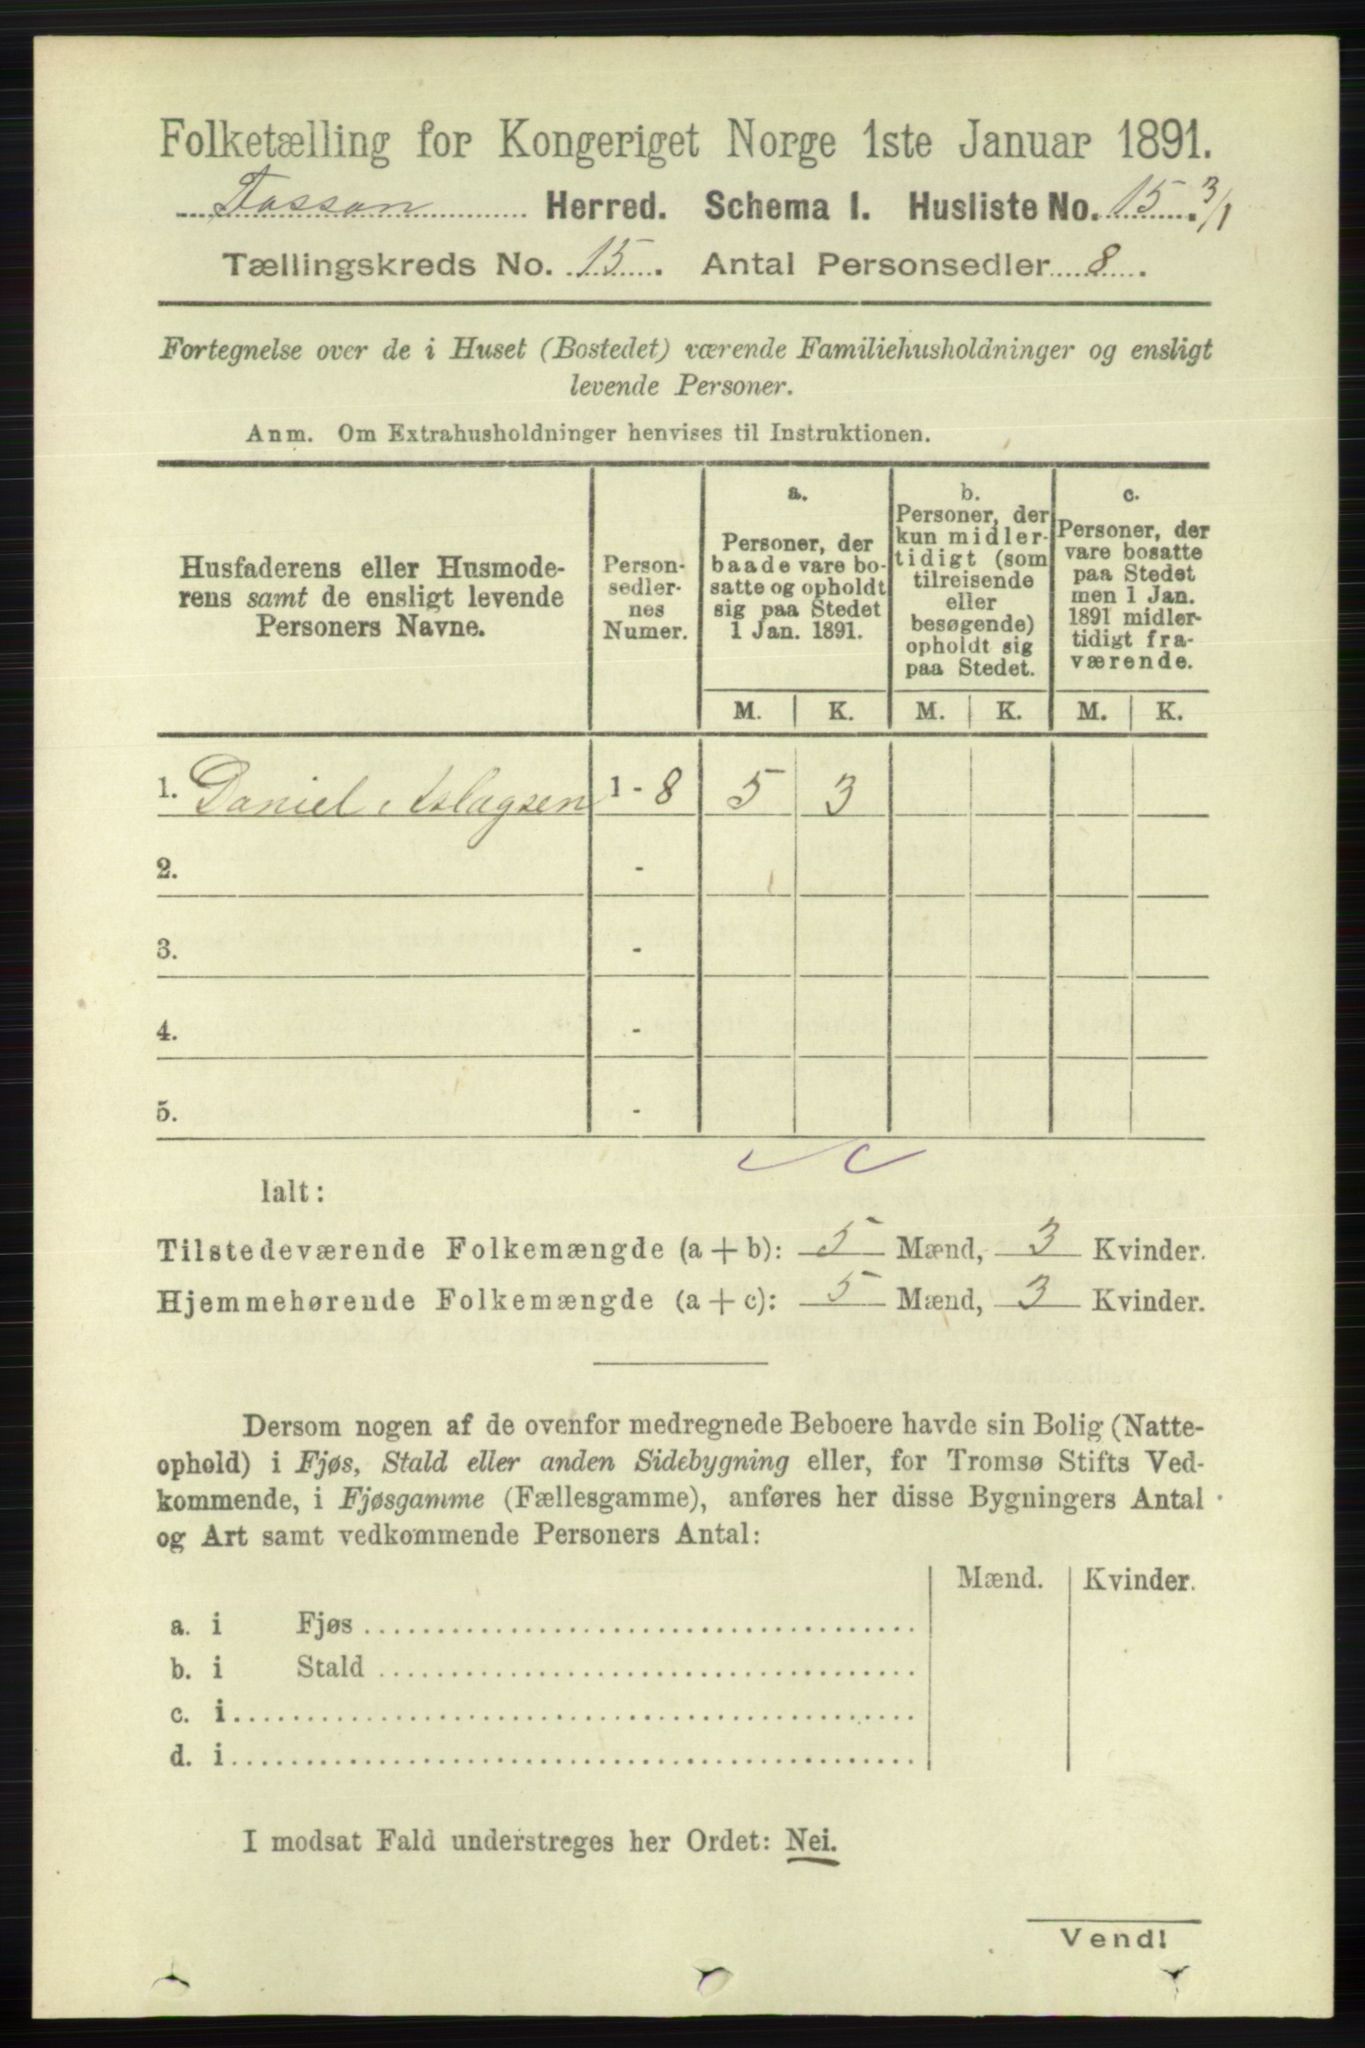 Folketælling for Kongeriget Norge 1ste Januar 1891.
Fossan Herred. Schema I. Husliste No. 15. 3/1
Tællingskreds No. 15. Antal Personsedler 8.
Fortegnelse over de i Huset (Bostedet) værende Familiehusholdninger og ensligt
levende Personer.
Anm. Om Extrahusholdninger henvises til Instruktionen.
Husfaderens eller Husmode-
rens samt de ensligt levende
Personers Navne.
Person-
sedler-
nes
Numer.
a.
Personer, der
baade vare bo-
satte og opholdt
sig paa Stedet
1 Jan. 1891.
b.
Personer, der
kun midler-
tidigt (som
tilreisende
eller
besøgende)
opholdt sig
paa Stedet.
c.
Personer, der
vare bosatte
paa Stedet
men 1 Jan.
1891 midler-
tidigt fra-
værende.
M. K. M. K. M. K.
1. Daniel Aslagsen 1 - 8 5 3
2. -
3. -
4. -
5. -
Ialt:
Tilstedeværende Folkemængde (a + b): 5 Mænd, 3 Kvinder.
Hjemmehørende Folkemængde (a + c): 5 Mænd, 3 Kvinder.
Dersom nogen af de ovenfor medregnede Beboere havde sin Bolig (Natte-
ophold) i Fjøs, Stald eller anden Sidebygning eller, for Tromsø Stifts Ved-
kommende, i Fjøsgamme (Fællesgamme), anføres her disse Bygningers Antal
og Art samt vedkommende Personers Antal:
Mænd. Kvinder.
a. i Fjøs
b. i Stald
c. i
d. i
I modsat Fald understreges her Ordet: Nei.
Vend!